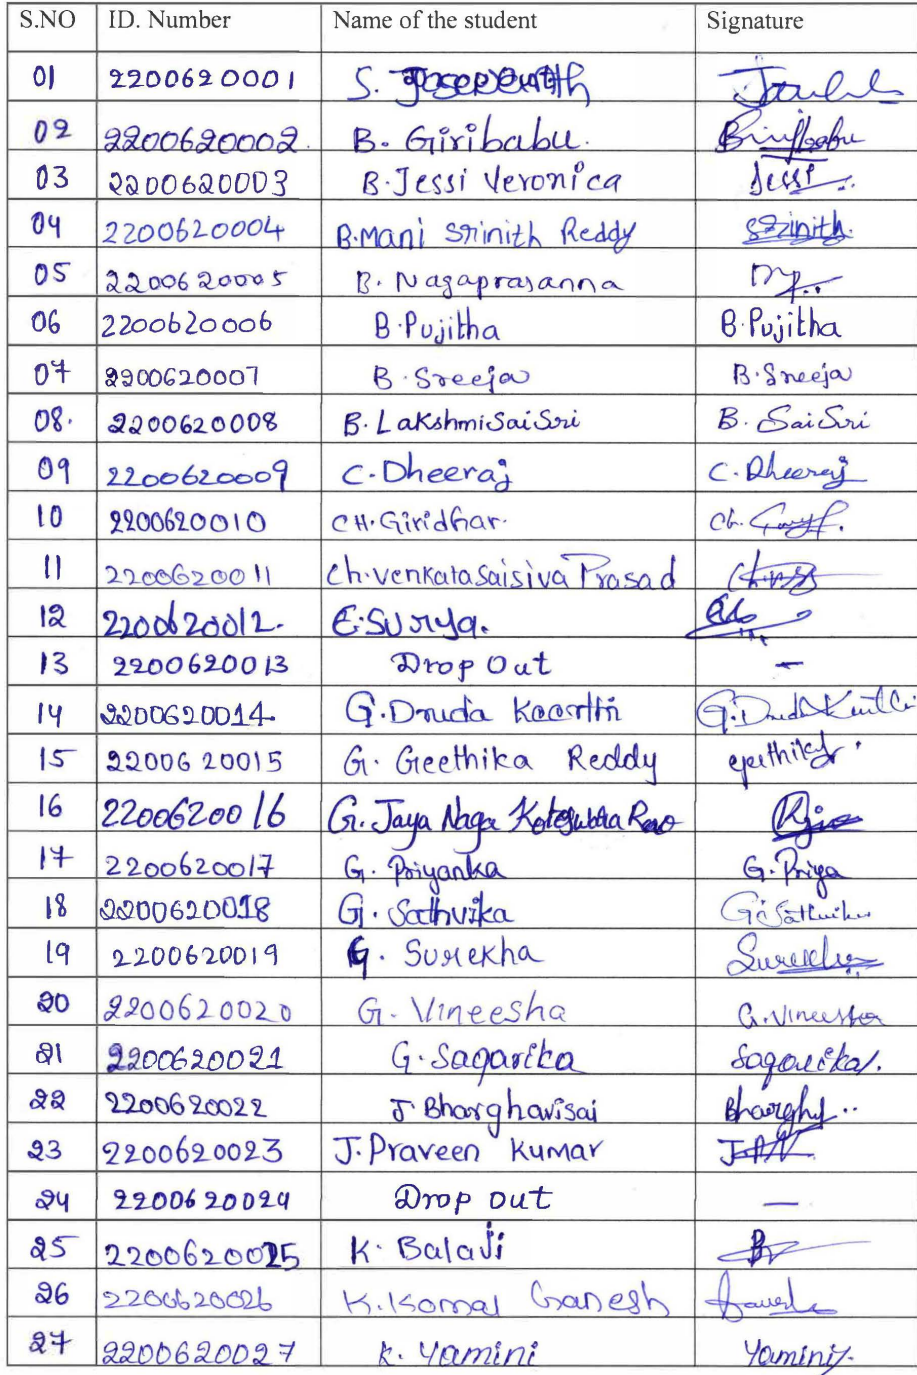 S.NO ID. Number Name of the student Signature
01 2200620001 S.
02 2200620002. B. Giribabu. Giribabu
03 2200620003 B. Jessi Veronica Jessi
04 2200620004 B. Mani Srinith Reddy Srinith.
05 2200620005 B. Nagaprasanna
06 2200620006 B. Pujitha B. Pujitha
07 2200620007 B. Sreeja B. Sreeja
08. 2200620008 B. Lakshmi Sai Sri B. Sai Sri
09 2200620009 C. Dheeraj C. Dheeraj
10 2200620010 CH. Giridhar. Ch.
11 2200620011 Ch. Venkata Sai siva Prasad
12 2200620012. E. Surya.
13 2200620013 Drop Out –
14 2200620014 G. Druda Keerthi G. Druda
15 2200620015 G. Geethika Reddy geethika
16 2200620016 G. Jaya Naga Kotesubba Rao
17 2200620017 G. Priyanka G. Priya
18 2200620018 G. Sathvika G. Sathvika
19 2200620019 G. Surekha Surekha
20 2200620020 G. Vineesha G. Vineesha
21 2200620021 G. Sagarika Sagarika.
22 2200620022 J Bharghavisai Bharghavi..
23 2200620023 J. Praveen Kumar
24 2200620024 Drop out –
25 2200620025 K. Balaji
26 2200620026 K. Komal Ganesh
27 2200620027 K. Yamini Yamini